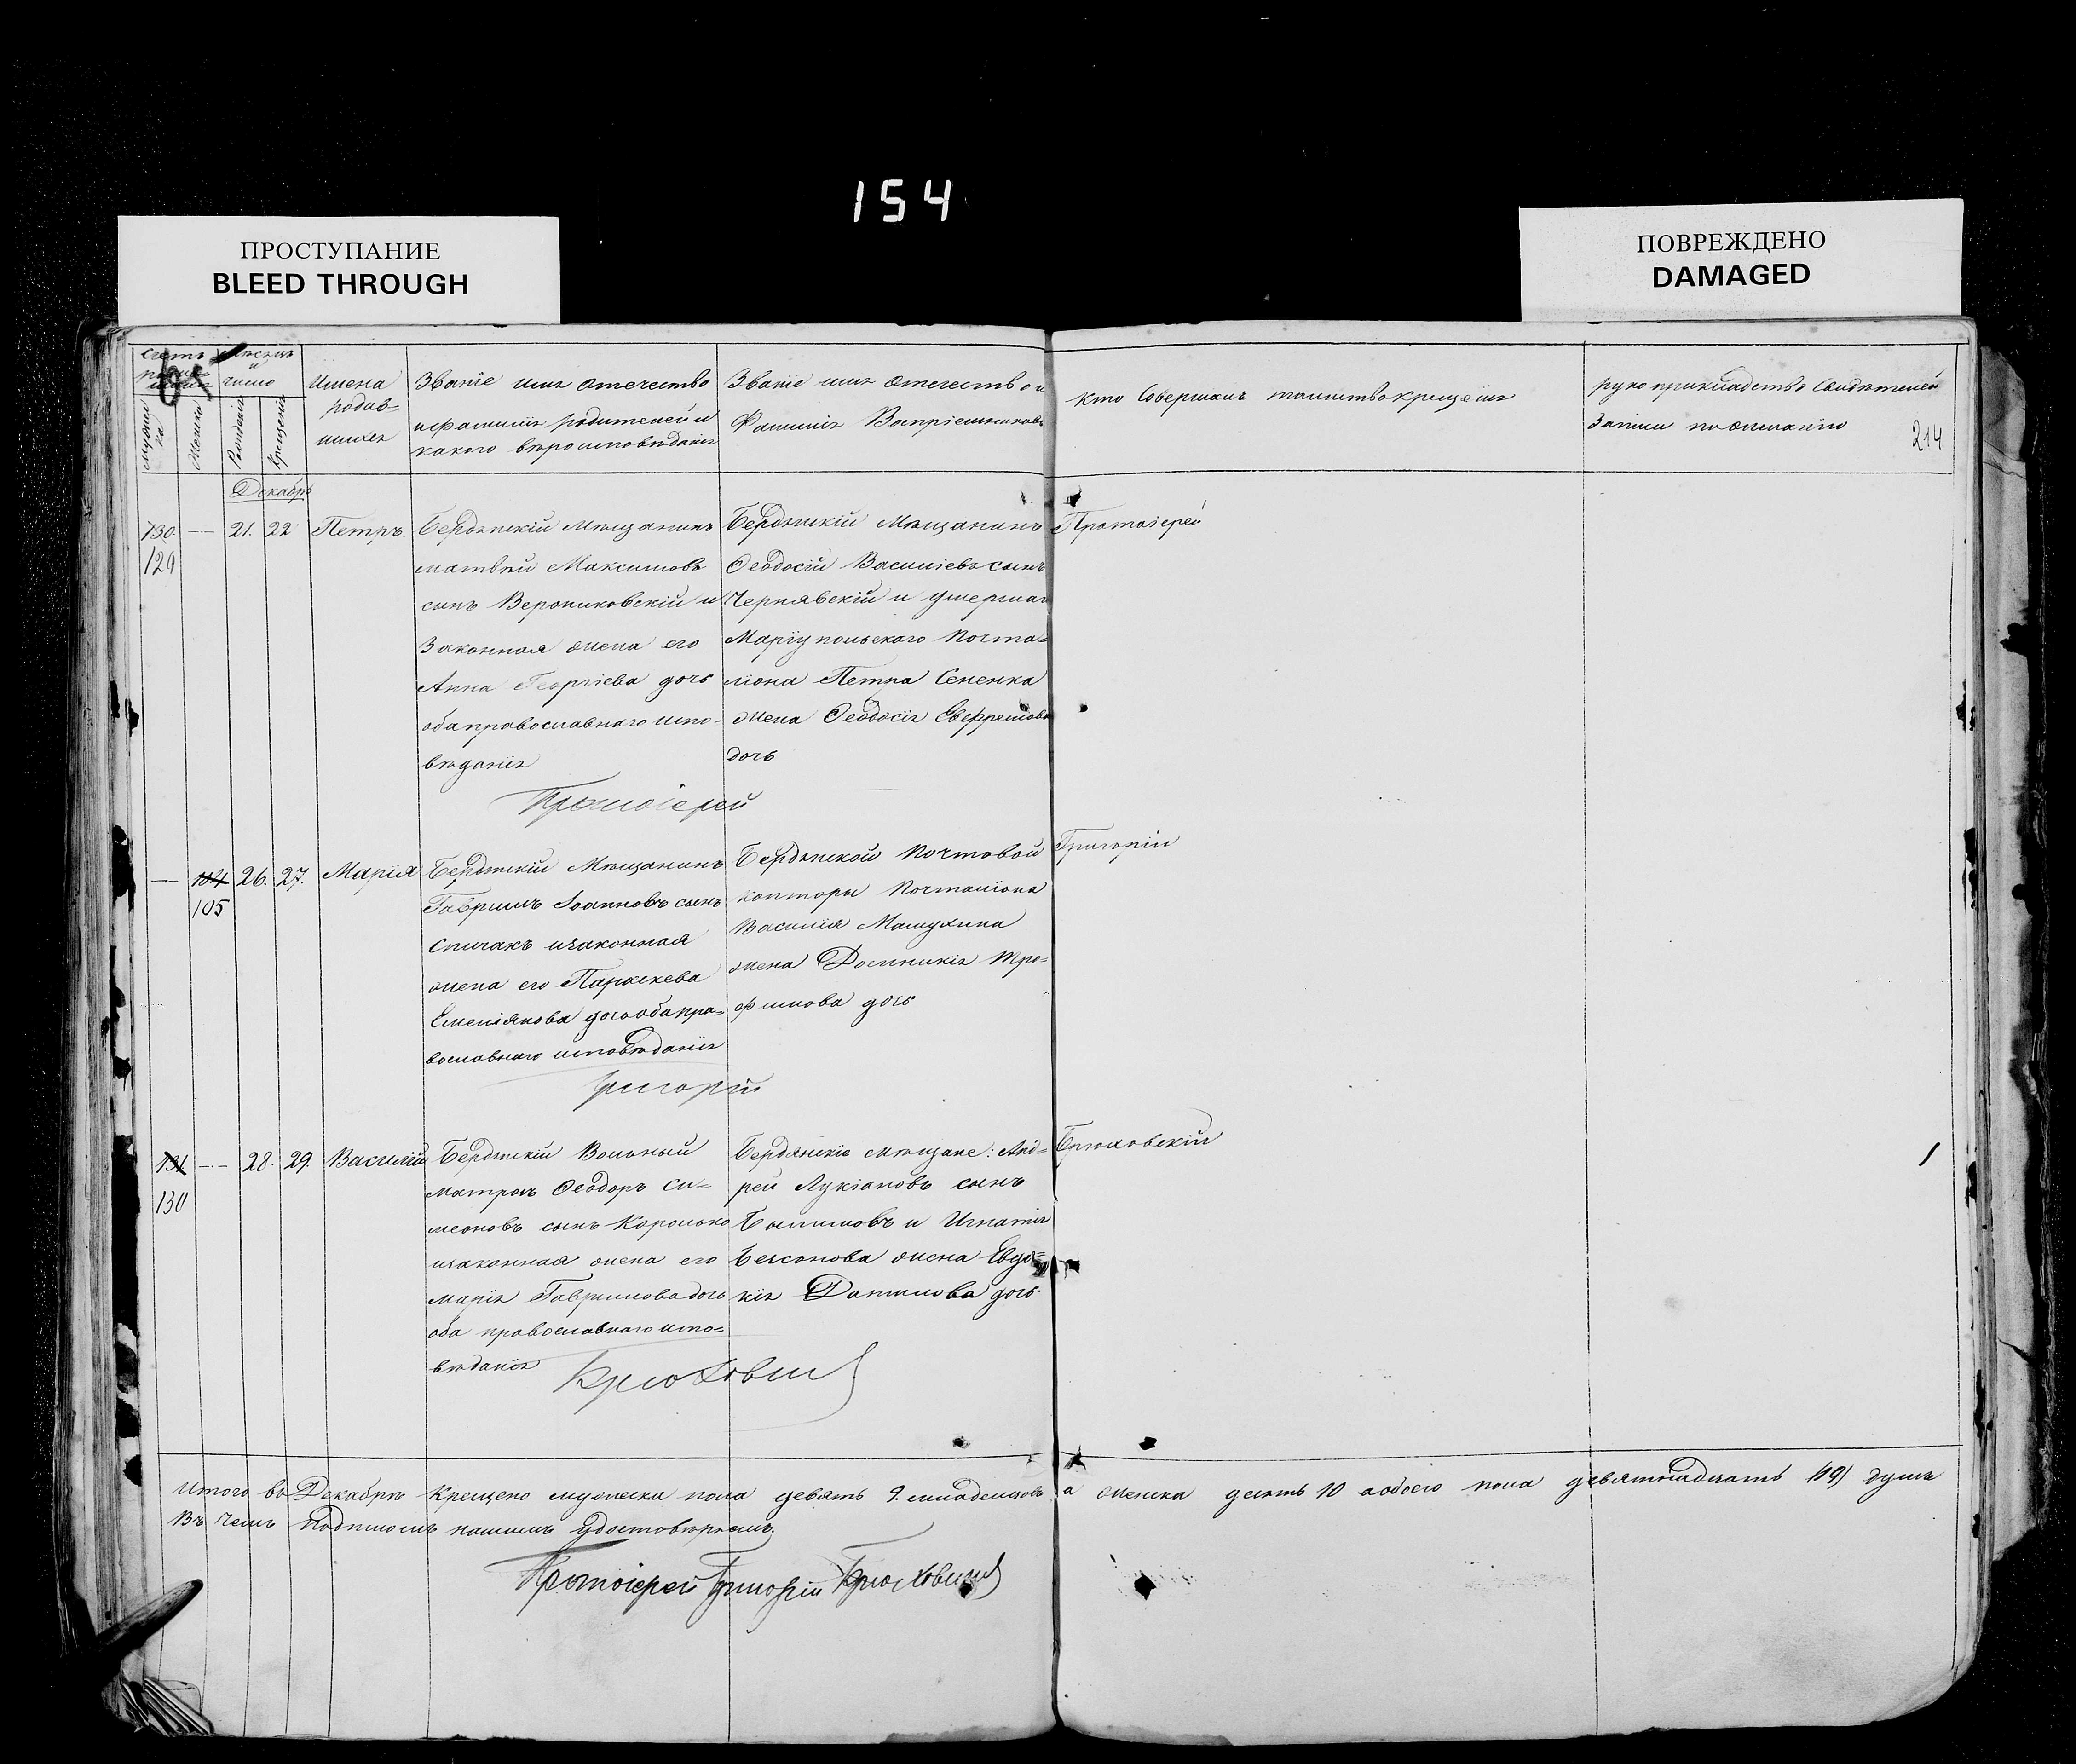 154
ПРОСТУПАНИЕ
BLEED THROUGH
ПОВРЕЖДЕНО
DAMAGED
Имена
родив-
шихся
Званіе имя отечество
и фамилія родителей и
какого вѣроисповѣданія
Званіе имя отечество и
Фамилія Воспріемниковъ
Кто Совершалъ таинство крещенія
рукоприкладство Свидѣтелей
Записи по желанію
214
Декабрь
130. — 21. 22 Петръ.
129
Бердянскій Мѣщанинъ
Матвѣй Максимовъ
сынъ Верониковскій и
Законная жена его
Анна Георгіева дочь
оба православнаго испо-
вѣданія
Бердянскій Мѣщанинъ
Ѳеодосій Василіевъ сынъ
Чернявскій и умершаго
Маріупольскаго Почта-
ліона Петра Сененка
жена Ѳеодосія Евфремова
дочь
Протоіерей
Протоіерей
— 104 26. 27. Марія
105
Бердянскій Мѣщанинъ
Гавриилъ Іоанновъ сынъ
Спичакъ и законная
жена его Параскева
Емеліянова дочь оба пра-
вославнаго исповѣданія
Бердянской Почтовой
конторы Почталіона
Василія Машухина
жена Домникія Тро-
фимова дочь
Григорій
Григорій
131 — 28. 29. Василій
130
Бердянскій Вольный
матросъ Ѳеодоръ Си-
меоновъ сынъ Королько
и законная жена его
Марія Гавриилова дочь
оба православнаго испо-
вѣданія
Бердянскіе мѣщане: Анд-
рей Лукіановъ сынъ
и Игнатія
жена Евдо-
кія Даниилова дочь.
Брюховскій
Брюховскій
Итого въ Декабрѣ Крещено мужеска пола девять 9. младенцовъ а женска десять 10 а обоего пола девятнадцать (19) душъ
Въ чемъ подписомъ нашимъ удостовѣряемъ.
Протоіерей Григорій Брюховскій